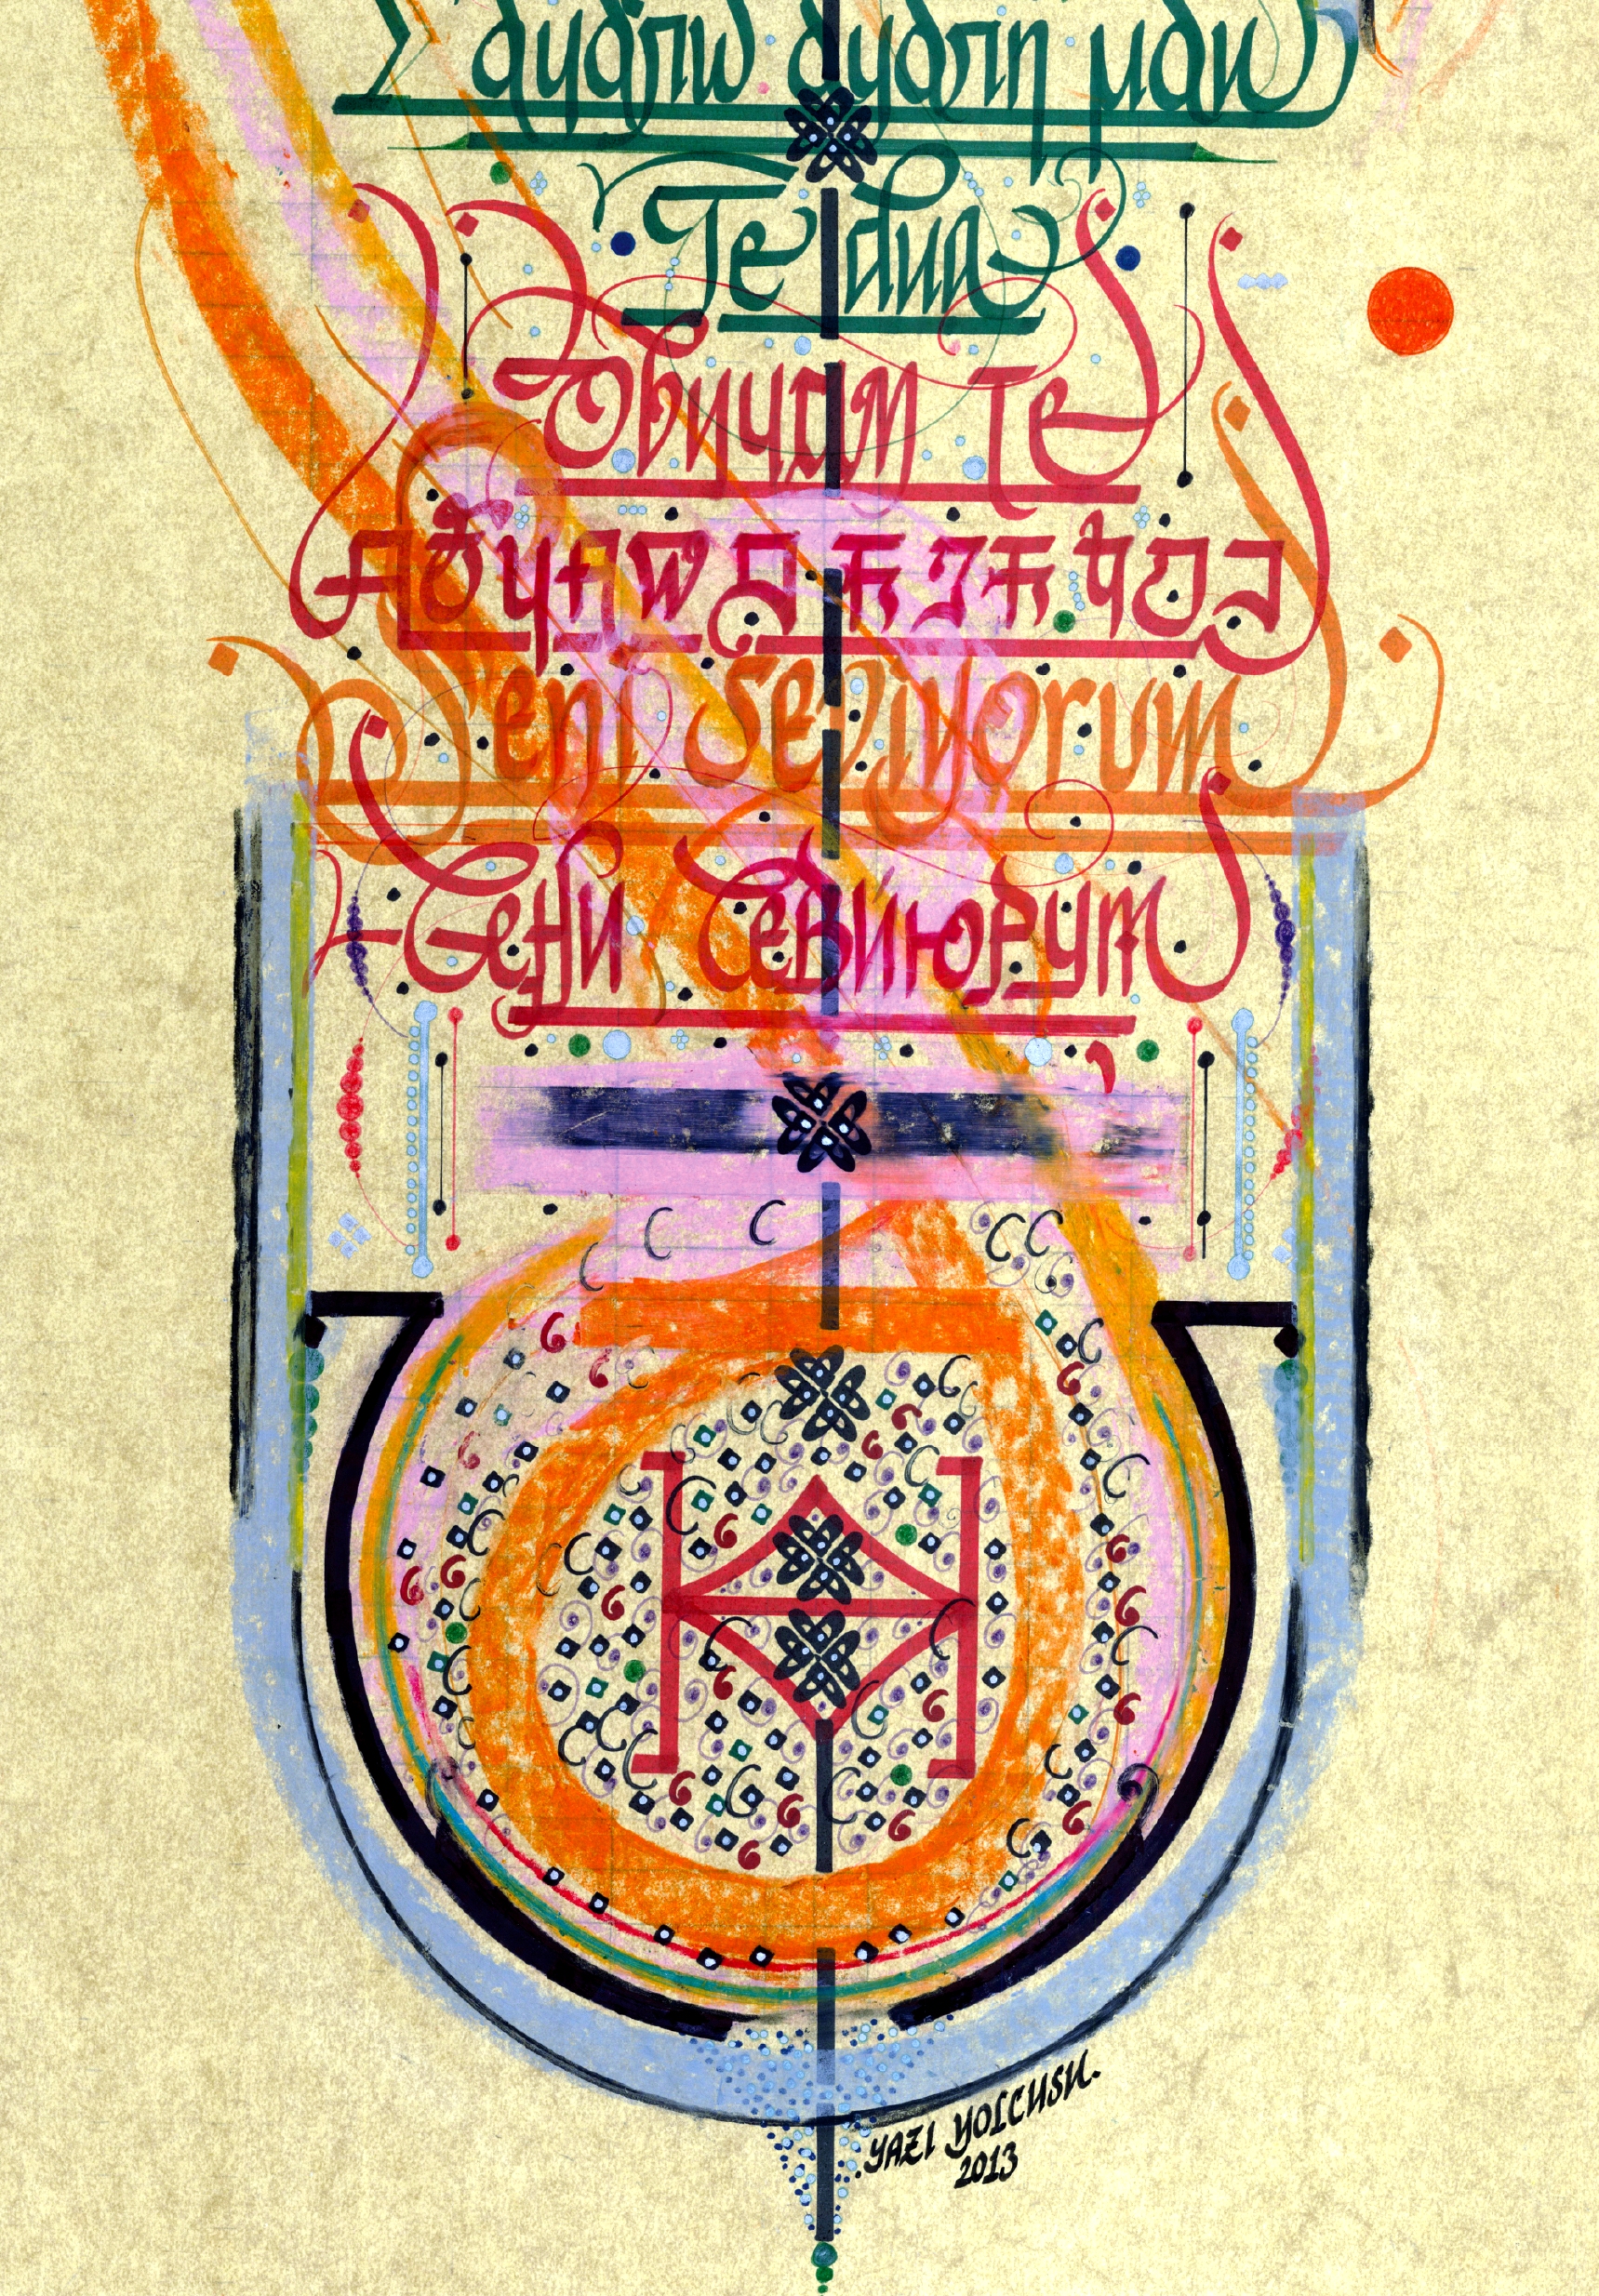 Σ αγαπω αγαπη μου
Te dua
Обичам те
Seni Seviyorum
Сени Севиюрум
YAZI YOLCUSU.
2013